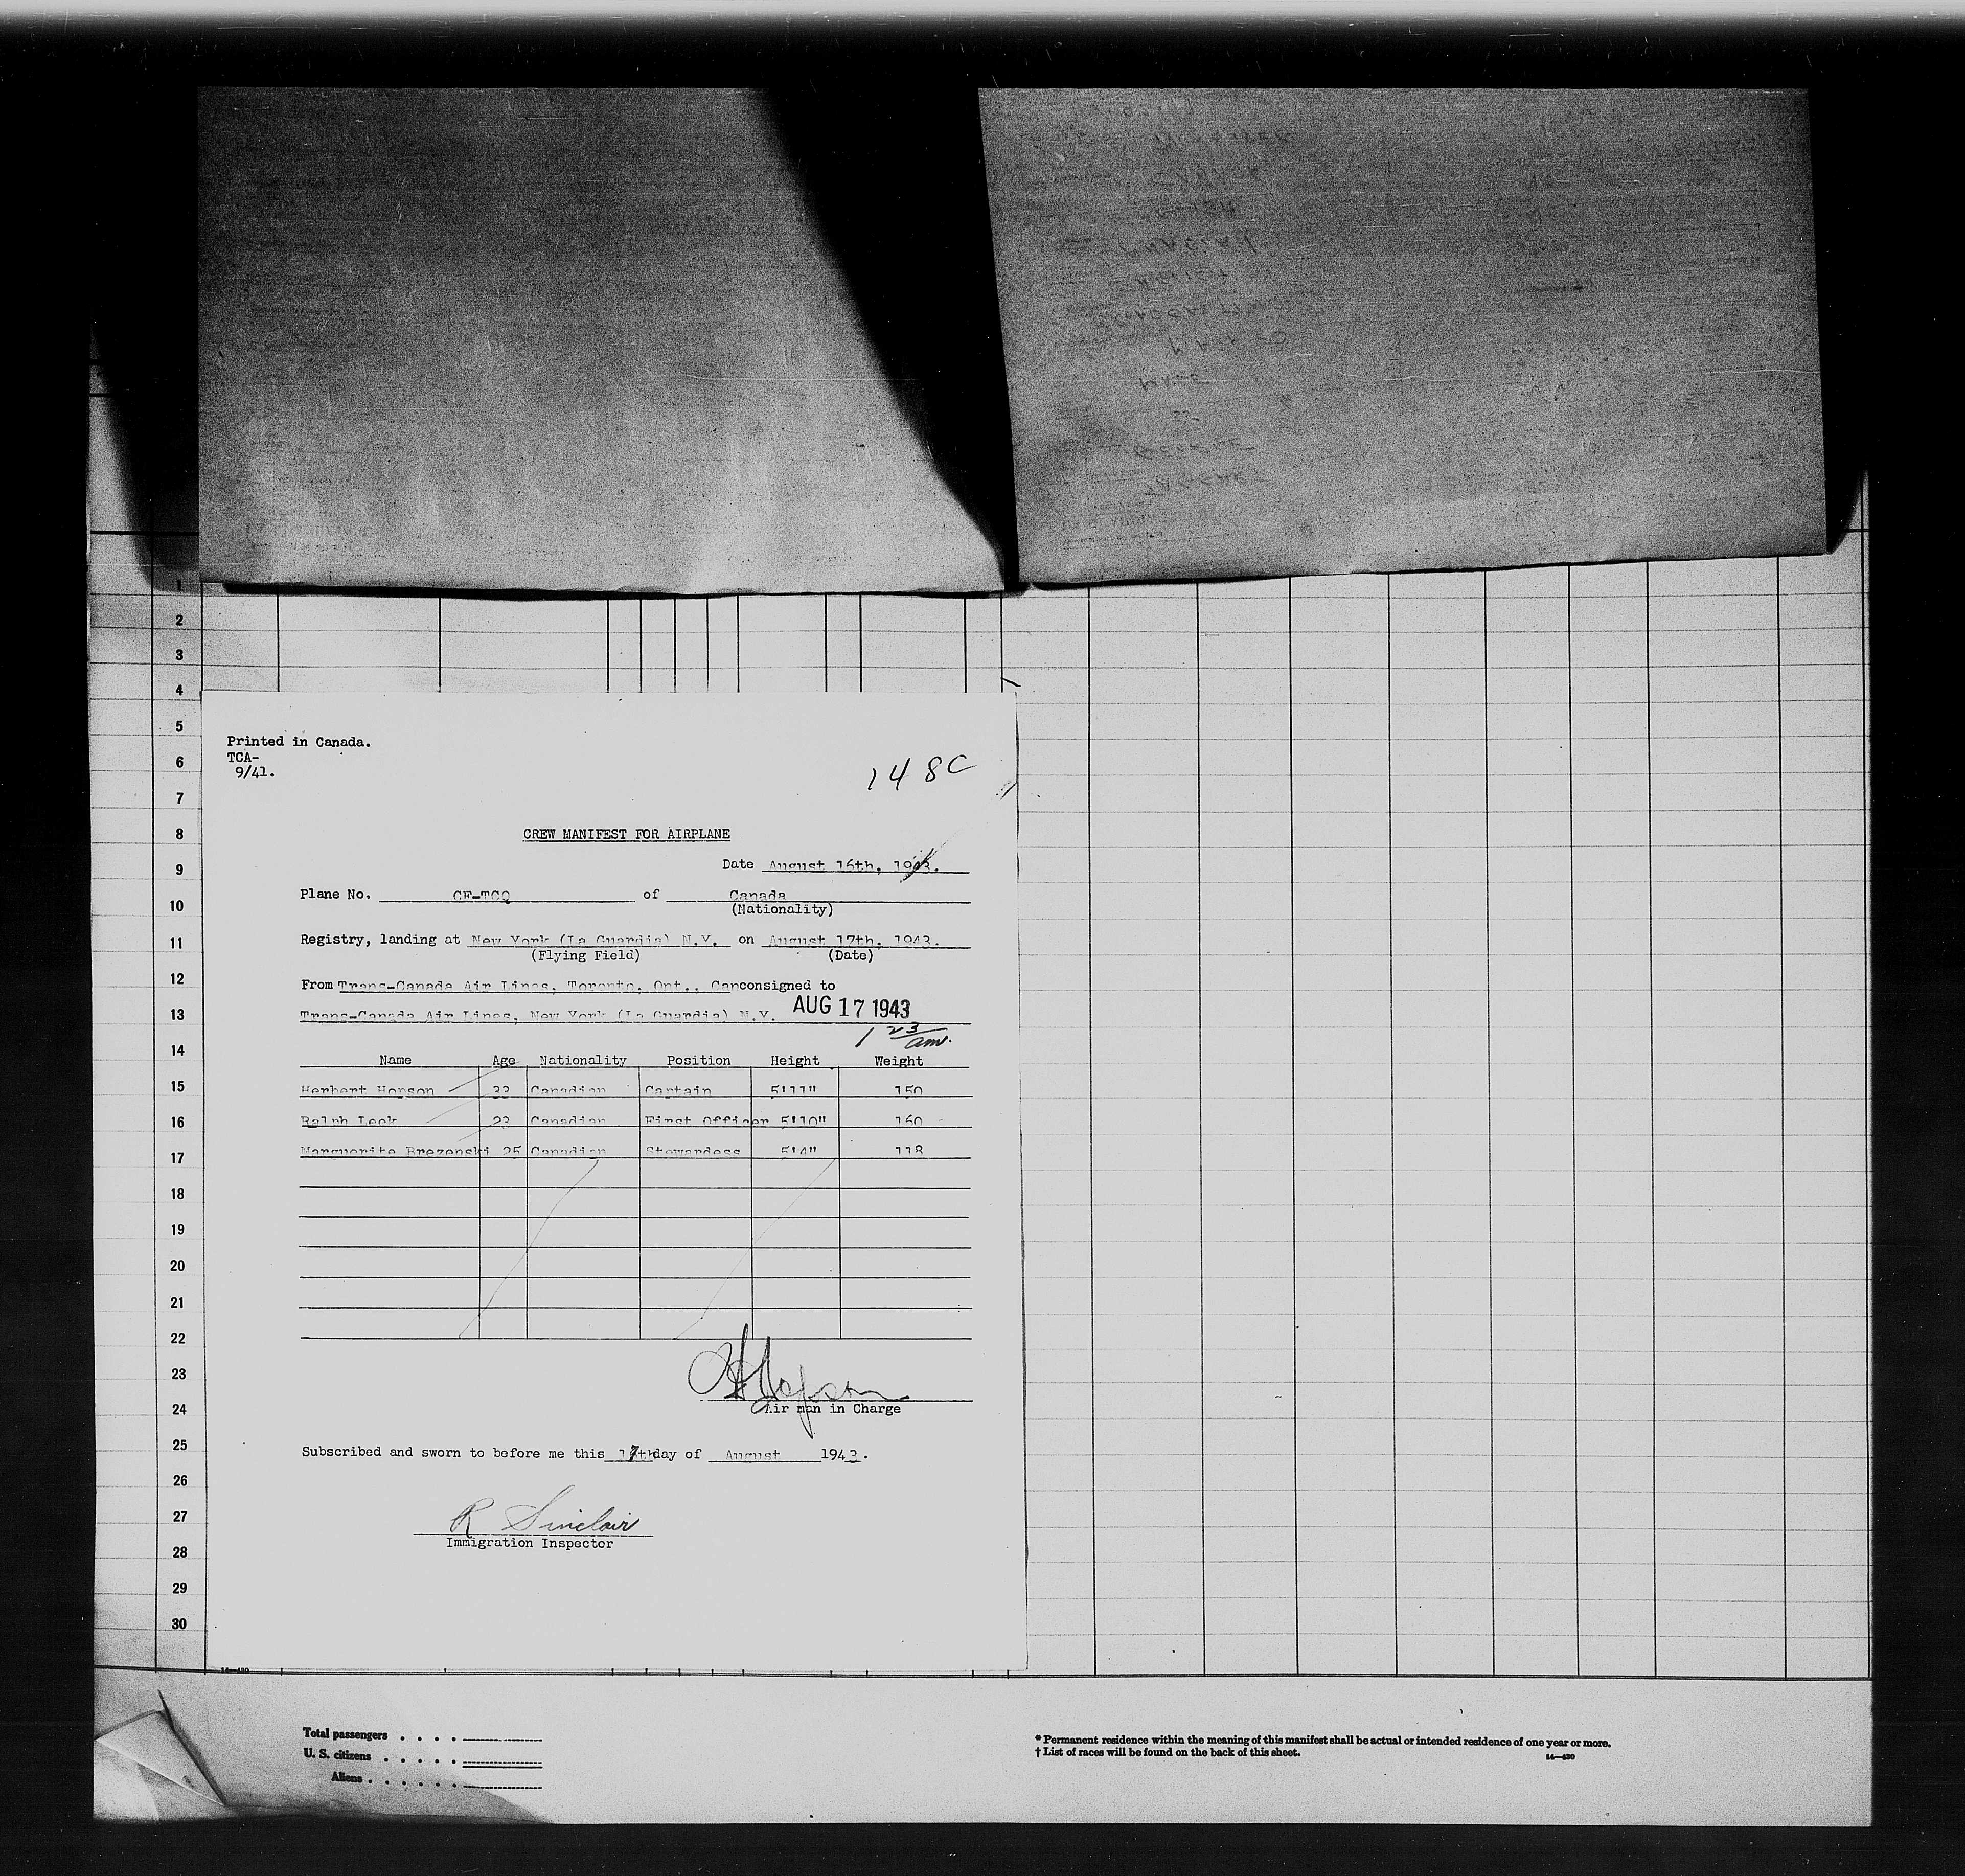 1
2
3
4
5
6
7
8
9
10
11
12
13
14
15
16
17
18
19
20
21
22
23
24
25
26
27
28
29
30
Printed in Canada.
TCA-
9/41.
148C
CREW MANIFEST FOR AIRPLANE
Date August 16th, 1943.
Plane No. CF-TCQ of Canada
(Nationality)
Registry, landing at New York (La Guardia) N.Y. on August 17th, 1943.
(Flying Field) (Date)
From Trans-Canada Air Lines, Toronto, Ont., Can consigned to
Trans-Canada Air Lines, New York (La Guardia) N.Y. AUG 17 1943
1 23 am.
Name Age Nationality Position Height Weight
Herbert Hopson 33 Canadian Captain 5'11" 150
Ralph Leek 23 Canadian First Officer 5'10" 160
Marguerite Brezenski 25 Canadian Stewardess 5'4" 118
H Hopson
Air man in Charge
Subscribed and sworn to before me this 17th day of August 1943.
R Sinclair
Immigration Inspector
Total passengers
U. S. citizens
Aliens
* Permanent residence within the meaning of this manifest shall be actual or intended residence of one year or more.
† List of races will be found on the back of this sheet.
14—430